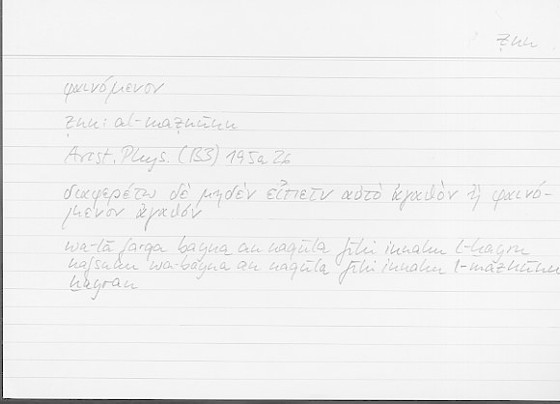 ẓnn
φαινόμενον
ẓnn: al-maẓnūnu
Arist. Phys. (B3) 195a 26
διαφερέτω δὲ μηδὲν εἰπεῖν αὐτὸ ἀγαθὸν ἢ φαινό-
μενον ἀγαθόν
wa-lā farqa bayna an naqūla fīhi innahu l-ḫayru
nafsuhu wa-bayna an naqūla fīhi innahu l-maẓnūnu
ḫayran